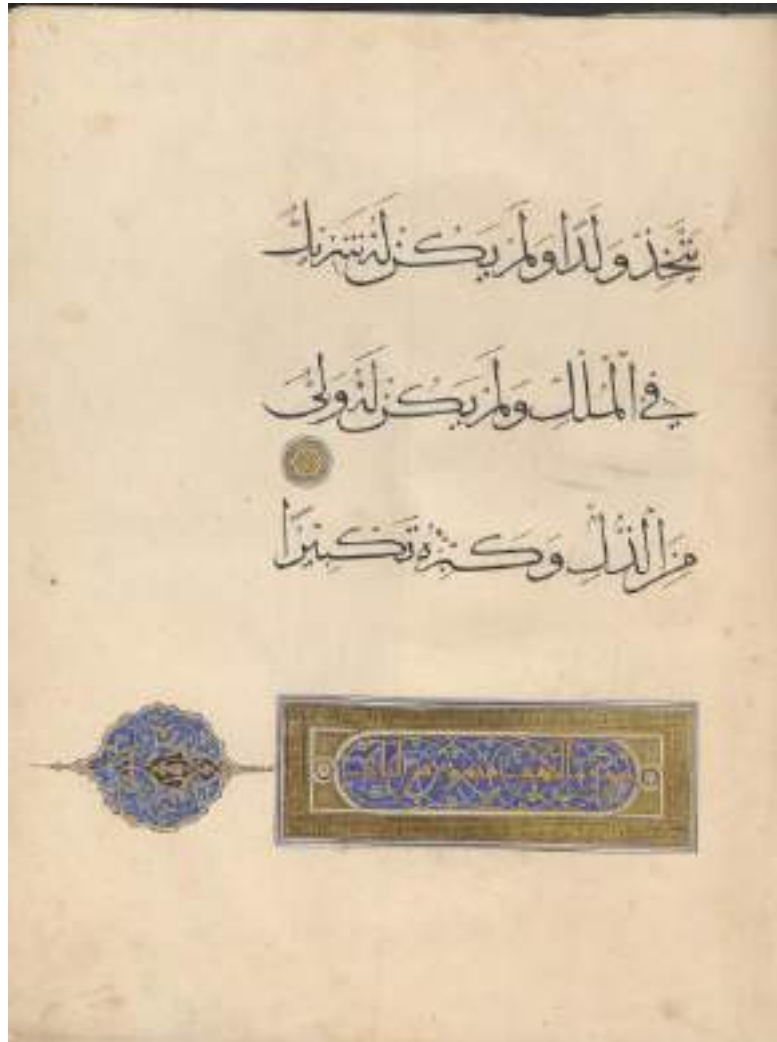 يَتَّخِذْ وَلَدًا وَلَمْ يَكُنْ لَهُ شَرِيكٌ
فِي الْمُلْكِ وَلَمْ يَكُنْ لَهُ وَلِيٌّ
مِنَ الذُّلِّ وَكَبِّرْهُ تَكْبِيرًا
سورة الكهف